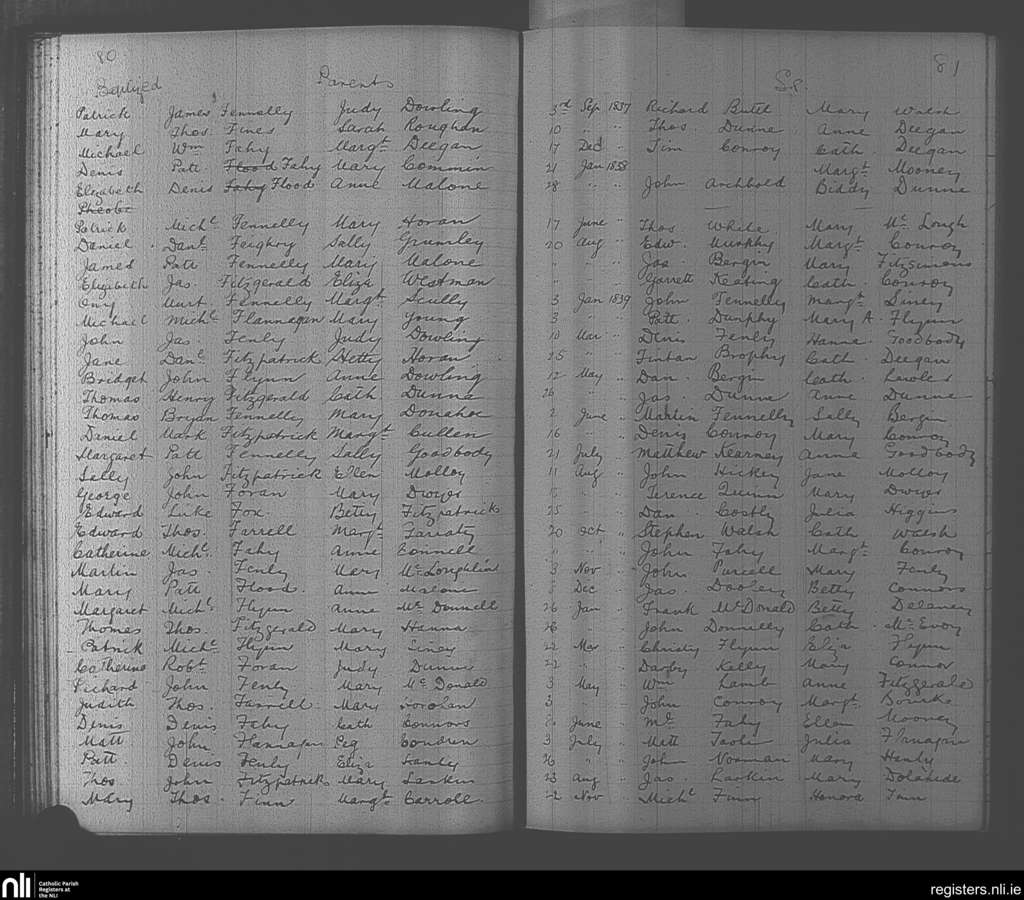 80
Baptized Parents
Patrick James Fennelly Judy Dowling
Mary Thos. Fines Sarah Roughan
Michael Wm Fahy Margt. Deegan
Denis Patt Flood Fahy Mary Commin
Elizabeth Denis Fahy Flood Anne Malone
Pheobe
Patrick Michl. Fennelly Mary Horan
Daniel Danl. Feighry Sally Grumley
James Patt Fennelly Mary Malone
Elizabeth Jas. Fitzgerald Eliza Westman
Ony Murt. Fennelly Margt. Scully
Michael Michl. Flannagan Mary Young
John Jas. Fenly Judy Dowling
Jane Danl. Fitzpatrick Hetty Horan
Bridget John Flynn Anne Dowling
Thomas Henry Fitzgerald Cath Dunne
Thomas Bryan Fennelly Mary Donahoe
Daniel Mark Fitzpatrick Margt. Cullen
Margaret Patt Fennelly Sally Goodbody
Sally John Fitzpatrick Ellen Molloy
George John Foran Mary Dwyer
Edward Luke Fox. Betty Fitzpatrick
Edward Thos. Farrell Margt.
Catherine Michl. Fahy Anne Connell
Martin Jas. Fenly Mary Mc Loughlin
Mary Patt Flood. Anne Malone
Margaret Michl. Flynn Anne Mc Donnell
Thomas Thos. Fitzgerald Mary Hanna
Patrick Michl. Flynn Mary Siney
Catherine Robt. Foran Judy Dunne
Richard John Fenly Mary Mc Donald
Judith Thos. Farrell Mary
Denis Denis Fahy Cath Connors
Matt John Flannagan Peg Condren
Patt. Denis Fenly Eliza
Thos John Fitzpatrick Mary Larkin
Mary Thos. Finn Margt. Carroll.
81
Sp.
3rd Sep 1837 Richard Butt Mary Walsh
10 " " Thos. Dunne Anne Deegan
17 Dec " Tim Conroy Cath. Deegan
21 Jan 1838 Margt. Mooney
28 " " John Archbold Biddy Dunne
17 June " Thos White Mary Mc Lough
20 Aug " Edw. Murphy Margt. Conroy
" " " Jas. Bergin Mary Fitzsimons
" " Garrett Keating Cath. Conroy
3 Jan 1839 John Fennelly Margt. Siney
3 " " Patt. Dunphy Mary A. Flynn
10 Mar " Denis Fenly Hanna Goodbody
25 " " Fintan Brophy Cath Deegan
12 May " Dan. Bergin Cath. Lawler
26 " " Jas. Dunne Anne Dunne
2 June " Martin Fennelly Sally Bergin
16 " " Denis Conroy Mary Conroy
21 July " Matthew Kearney Anna Goodbody
11 Aug " John Hickey Jane Molloy
" " Terence Quinn Mary Dwyer
25 " " Dan. Costly Julia Higgins
20 Oct " Stephen Walsh Cath Walsh
" " " John Fahy Margt. Conroy
3 Nov " John Purcell Mary Fenly
8 Dec " Jas. Dooley Betty Connors
26 Jan " Frank McDonald Betty Delaney
26 " John Donnelly Cath. McEvoy
22 Mar " Christy Flynn Eliza Flynn
22 " " Darby Kelly Mary Connor
3 May " Wm Lamb Anne Fitzgerald
3 " John Conroy Margt.
21 June " Ml. Fahy Ellen Mooney
3 July " Matt Julia Flanagan
26 " " John Norman Mary Henly
23 Aug " Jas. Larkin Mary
22 Nov " Michl Finn Honora Finn
nli
Catholic Parish
Registers at
the NLI
registers.nli.ie